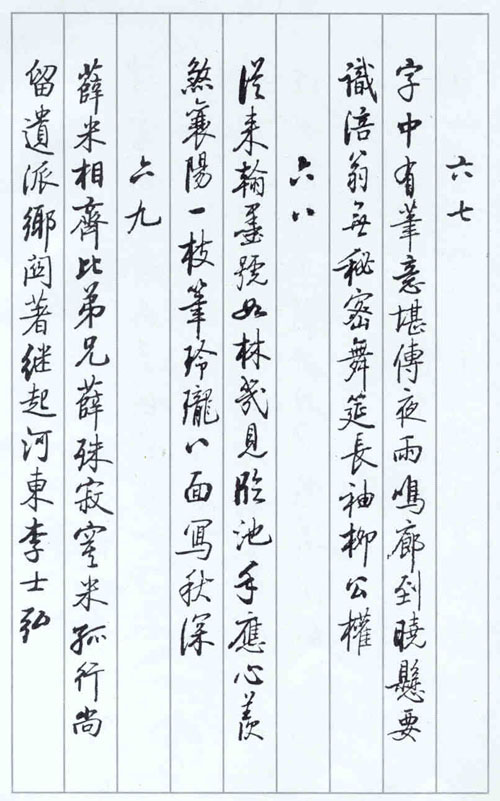 六七
字中有筆意堪傳夜雨鳴廊到曉懸要
識涪翁無秘密舞筵長袖柳公權
六八
從來翰墨號如林幾見臨池手應心羨
煞襄陽一枝筆玲瓏八面寫秋深
六九
薛米相齊比弟兄薛殊寂寞米孤行尚
留遺派鄉閭著继起河東李士弘